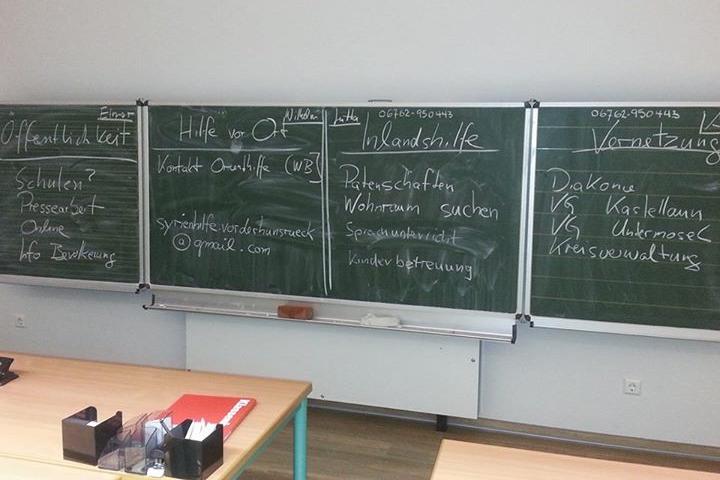 Elmar
Öffentlichkeit
Schulen?
Pressearbeit
Online
Info Bevölkerung
Wilhelm
Hilfe vor Ort
Kontakt Orienthilfe (WB)
syrienhilfe.vorderhunsrueck
@gmail.com
Jutta 06762-950443
Inlandshilfe
Patenschaften
Wohnraum suchen
Sprachunterricht
Kinderbetreuung
06762-950443
Vernetzung
Diakonie
VG Kastellaun
VG Untermosel
Kreisverwaltung
Klassen